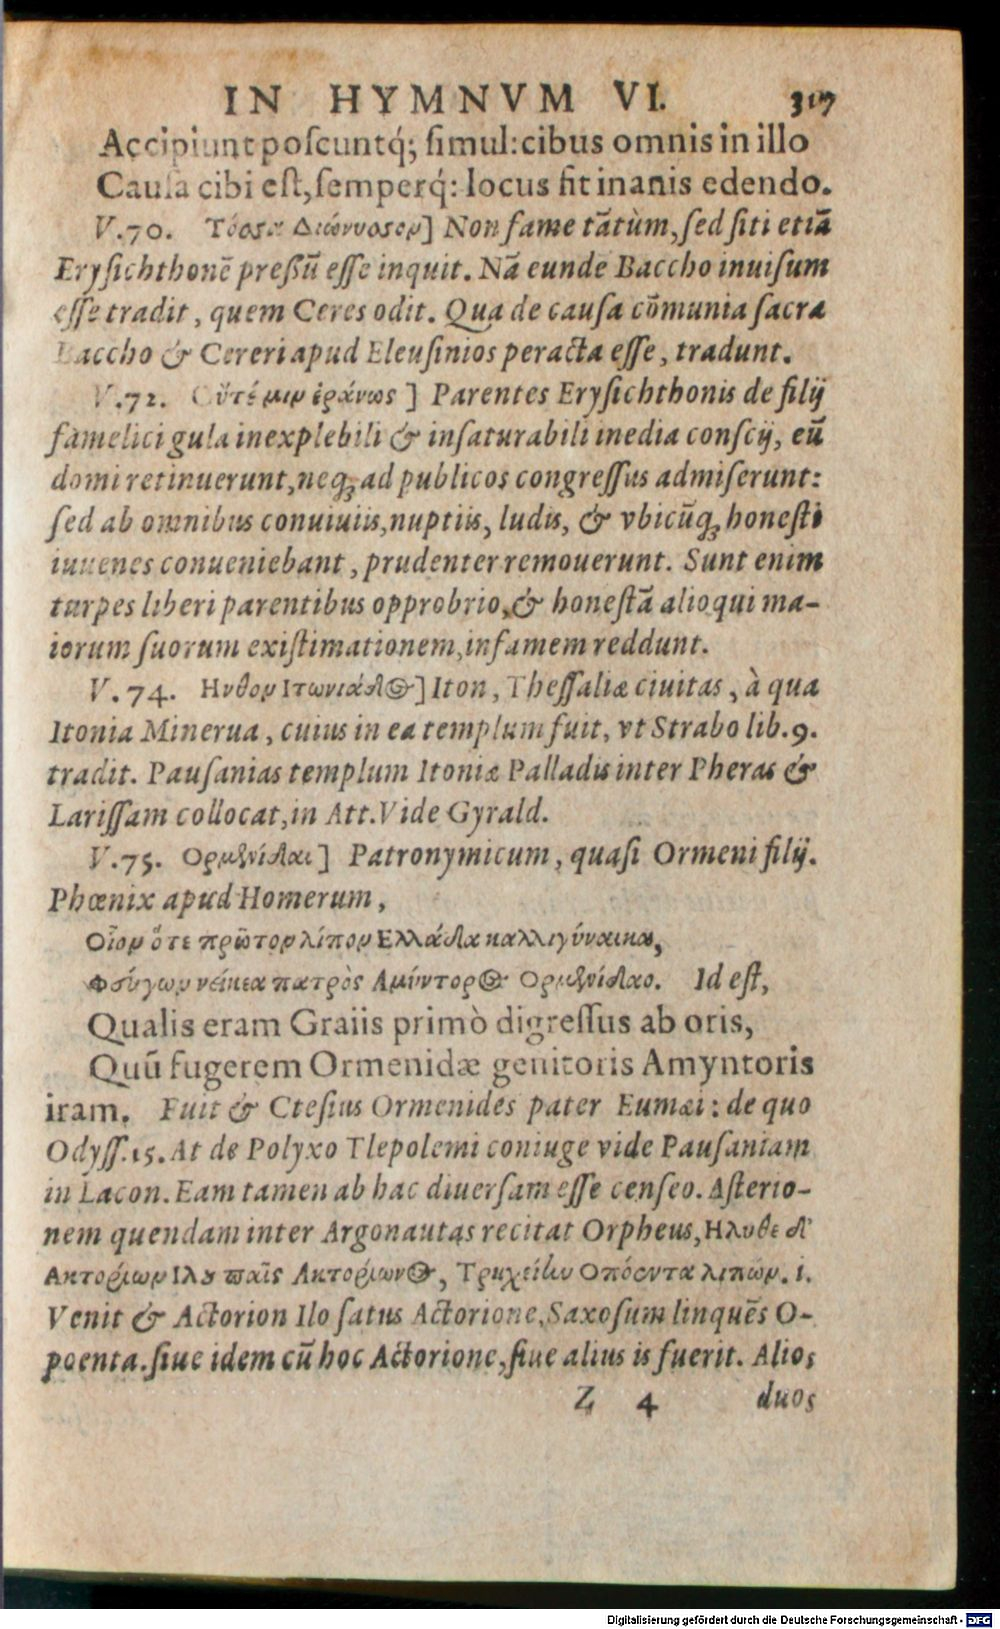 IN HYMNVM VI. 317
Accipiunt poſcuntq́; ſimul: cibus omnis in illo
Cauſa cibi eſt, ſemperq́: locus fit inanis edendo.
V.70. Τόσσα Διώνυσον] Non fame tātùm, ſed ſiti etiā
Eryſichthonē preſſū eſſe inquit. Nā eunde Baccho inuiſum
eſſe tradit, quem Ceres odit. Qua de cauſa cōmunia ſacra
Baccho & Cereri apud Eleuſinios peracta eſſe, tradunt.
V.72. Οὔτέ μιν ἐράνως ] Parentes Eryſichthonis de filij
famelici gula inexplebili & inſaturabili inedia conſcij, eū
domi retinuerunt, neq; ad publicos congreſſus admiſerunt:
ſed ab omnibus conuiuiis, nuptiis, ludis, & vbicūq; honeſti
iuuenes conueniebant, prudenter remouerunt. Sunt enim
turpes liberi parentibus opprobrio, & honeſtā alioqui ma-
iorum ſuorum exiſtimationem, infamem reddunt.
V. 74. Ηνθον Ιτωνιάδος] Iton, Theſſaliæ ciuitas, à qua
Itonia Minerua, cuius in ea templum fuit, vt Strabo lib.9.
tradit. Pauſanias templum Itoniæ Palladis inter Pheras &
Lariſſam collocat, in Att. Vide Gyrald.
V.75. Ορμενίδαι] Patronymicum, quaſi Ormeni filij.
Phœnix apud Homerum,
Οἷον ὅτε πρῶτον λίπον Ελλάδα καλλιγύναικα,
Φεύγων νείκεα πατρὸς Αμύντορος Ορμενίδαο. Id eſt,
Qualis eram Graiis primò digreſſus ab oris,
Quū fugerem Ormenidæ genitoris Amyntoris
iram. Fuit & Cteſius Ormenides pater Eumæi: de quo
Odyſſ.15. At de Polyxo Tlepolemi coniuge vide Pauſaniam
in Lacon. Eam tamen ab hac diuerſam eſſe cenſeo. Aſterio-
nem quendam inter Argonautas recitat Orpheus, Ηλυθε δ'
Ακτορίων Ιλου παῖς Ακτορίωνος, Τρηχείην Οπόεντα λιπών. i.
Venit & Actorion Ilo ſatus Actorione, Saxoſum linquēs O-
poenta. ſiue idem cū hoc Actorione, ſiue alius is fuerit. Alios
Z 4 duos
Digitalisierung gefördert durch die Deutsche Forschungsgemeinschaft - DFG